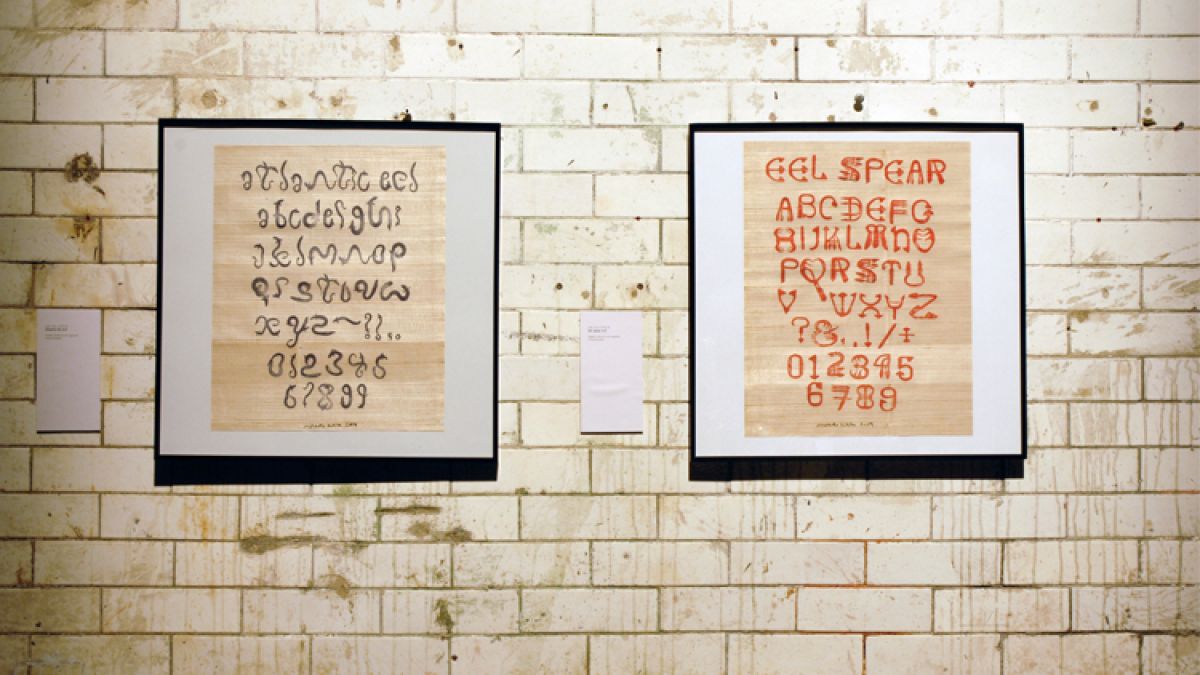 atlantic eel
abcdefghi
jklmnop
qrstuvw
xyz~?!..
012345
67899
EEL SPEAR
ABCDEFG
HIJKLMNO
PQRSTU
V WXYZ
?&..!/‡
012345
6789